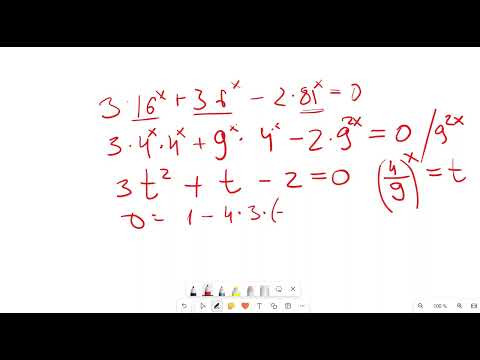 3·16ˣ + 36ˣ − 2·81ˣ = 0
3·4ˣ·4ˣ + 9ˣ·4ˣ − 2·9²ˣ = 0 / 9²ˣ
3t² + t − 2 = 0 (4/9)ˣ = t
D = 1 − 4·3·(-
100 %